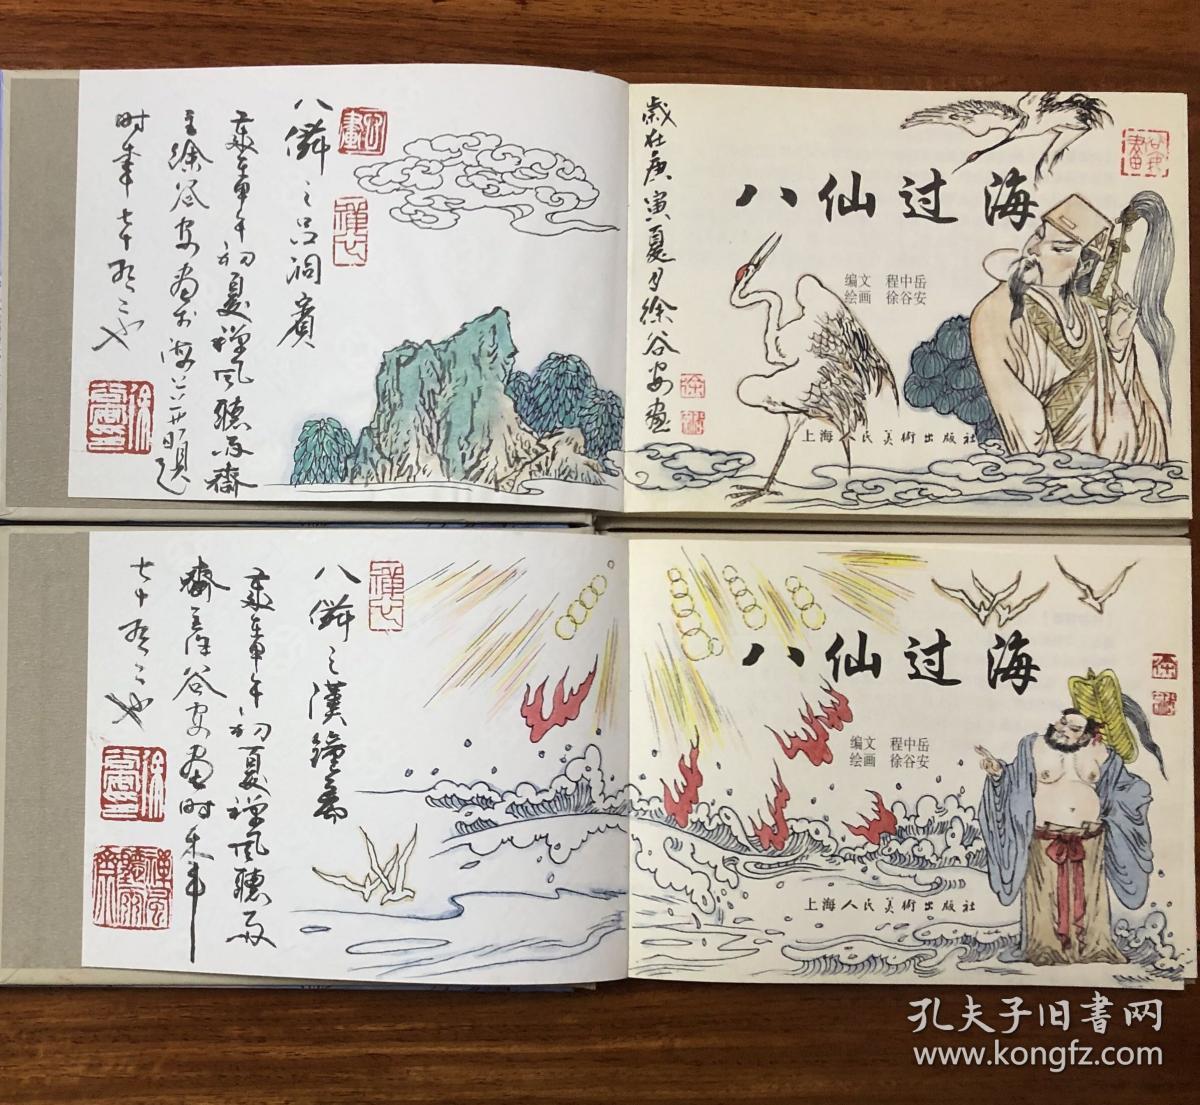 八仙过海
编文 程中岳
绘画 徐谷安
上海人民美術出版社
歲在庚寅夏月徐谷安画
八僊之吕洞賓
庚寅年初夏禅风聽雨齋
主徐谷安画於海上并題
时年七十有三也
八仙过海
编文 程中岳
绘画 徐谷安
上海人民美術出版社
八僊之漢鐘離
庚寅年初夏禅风聽雨
齋主徐谷安画时年
七十有三也
孔夫子旧书网
www.kongfz.com